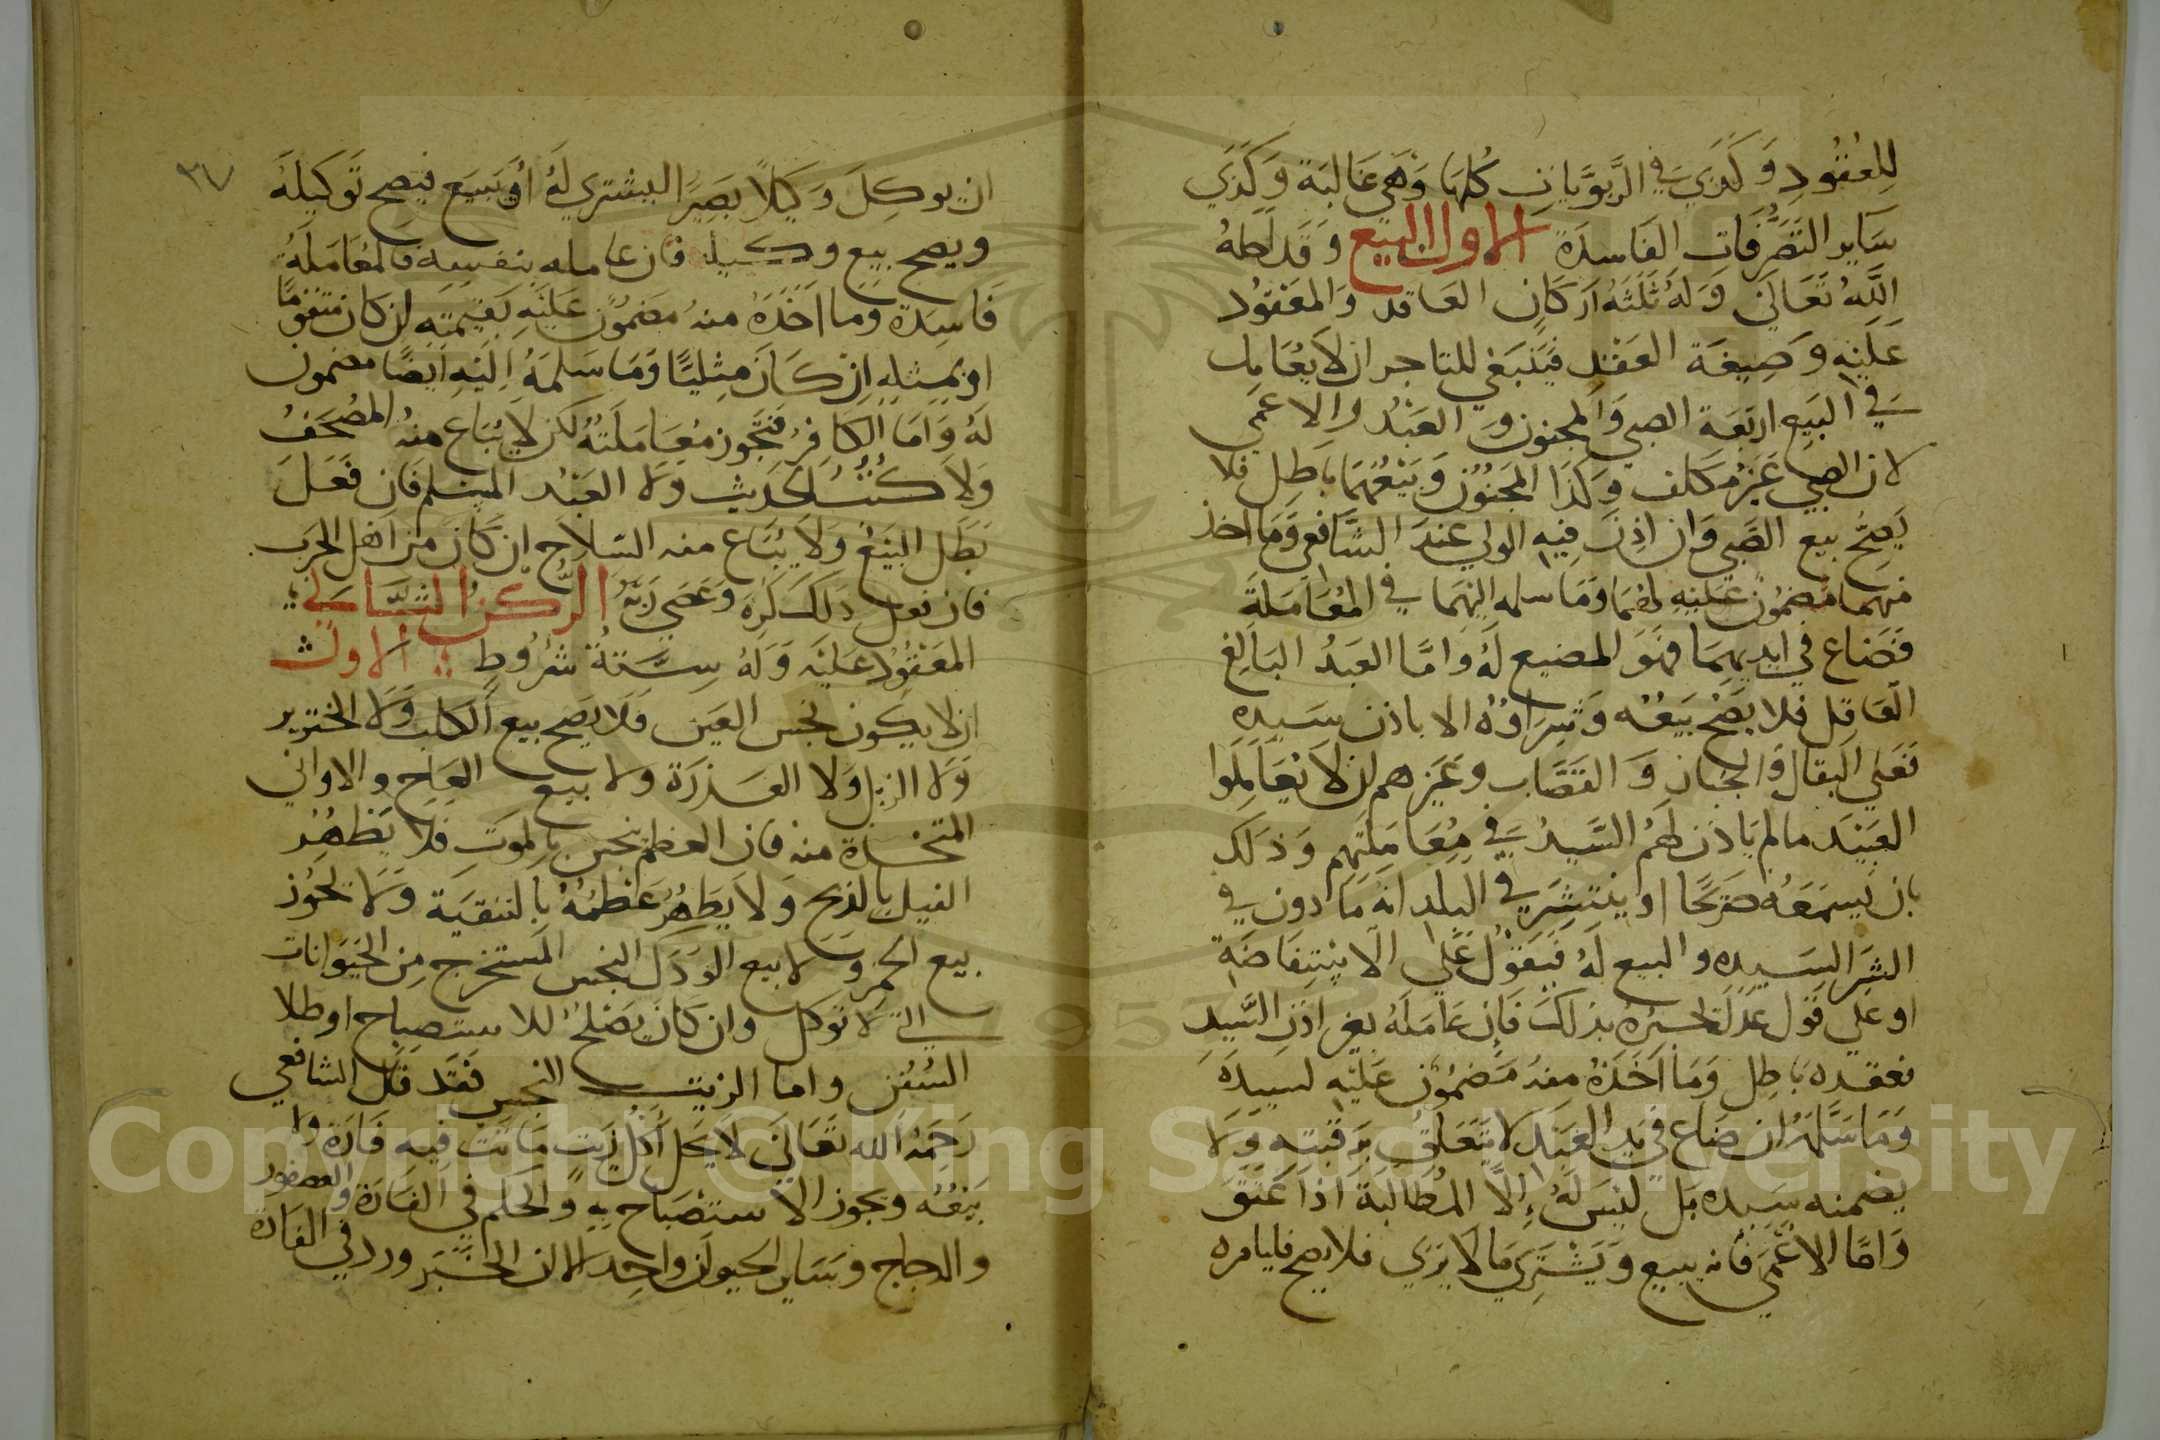 للعقود وكذي في الربويات كلها وهي غالبة وكذي
ساير التصرفات الفاسدة الاول البيع وقد احله
الله تعالى وله ثلثه اركان العاقد والمعقود
عليه وصيغة العقد فينبغي للتاجر ان لا يعامل
في البيع اربعة الصبي والمجنون والعبد والاعمى
لان الصبي غير مكلف وكذا المجنون وبيعهما باطل فلا
يصح بيع الصبي وان اذن فيه الولي عند الشافعي وما اخذ
منهما مضمون عليه لهما وما سلمه اليهما في المعاملة
فضاع في ايديهما فهو المضيع له واما العبد البالغ
العاقل فلا يصح بيعه وشراوه الا باذن سيده
فعلي البقال والخباز والقصاب وغيرهم ان لا يعاملوا
العبيد ما لم ياذن لهم السيد في معاملتهم وذلك
بان يسمعه صريحا او ينتشر في البلد انه ماذون في
الشرا لسيده والبيع له فيعول علي الاستفاضة
او علي قول عدل يخبره بذلك فان عامله بغير اذن السيد
فعقده باطل وما اخذه منه مضمون عليه لسيده
وما سلمه ان ضاع في يد العبد لا يتعلق برقبته ولا
يضمنه سيده بل ليس له الا المطالبة اذا عتق
واما الاعمى فانه يبيع ويشتري ما لا يري فلا يصح فليامره
٣٧
ان يوكل وكيلا بصيرا ليشتري له او يبيع فيصح توكيله
ويصح بيع وكيله فان عامله بنفسه فالمعاملة
فاسدة وما اخذه منه مضمون عليه بقيمته ان كان متقوما
او بمثله ان كان مثليا وما سلمه اليه ايضا مضمون
له واما الكافر فتجوز معاملته لكن لا يباع منه المصحف
ولا كتب الحديث ولا العبد المسلم فان فعل
بطل البيع ولا يباع منه السلاح ان كان من اهل الحرب
فان فعل ذلك كره وعصي ربه الركن الثاني
المعقود عليه وله ستة شروط الاول
ان لا يكون نجس العين فلا يصح بيع الكلب ولا الخنزير
ولا الزبل ولا العذرة ولا بيع العاج والاواني
المتخذة منه فان العظم ينجس بالموت فلا يظهر
الفيل بالذبح ولا يطهر عظمه بالتنقية ولا يجوز
بيع الخمر ولا بيع الودك النجس المستخرج من الحيوانات
التي لا توكل وان كان يصلح للاستصباح او طلا
السفن واما الزيت النجس فقد قال الشافعي
رحمه الله تعالى لا يحل اكل زيت ماتت فيه فارة ولا
بيعه ويجوز الاستصباح به والحكم في الفارة والعصفور
والدجاج وساير الحيوان واحد الا ان الخبر ورد في الفارة
Copyright © King Saud University
1957